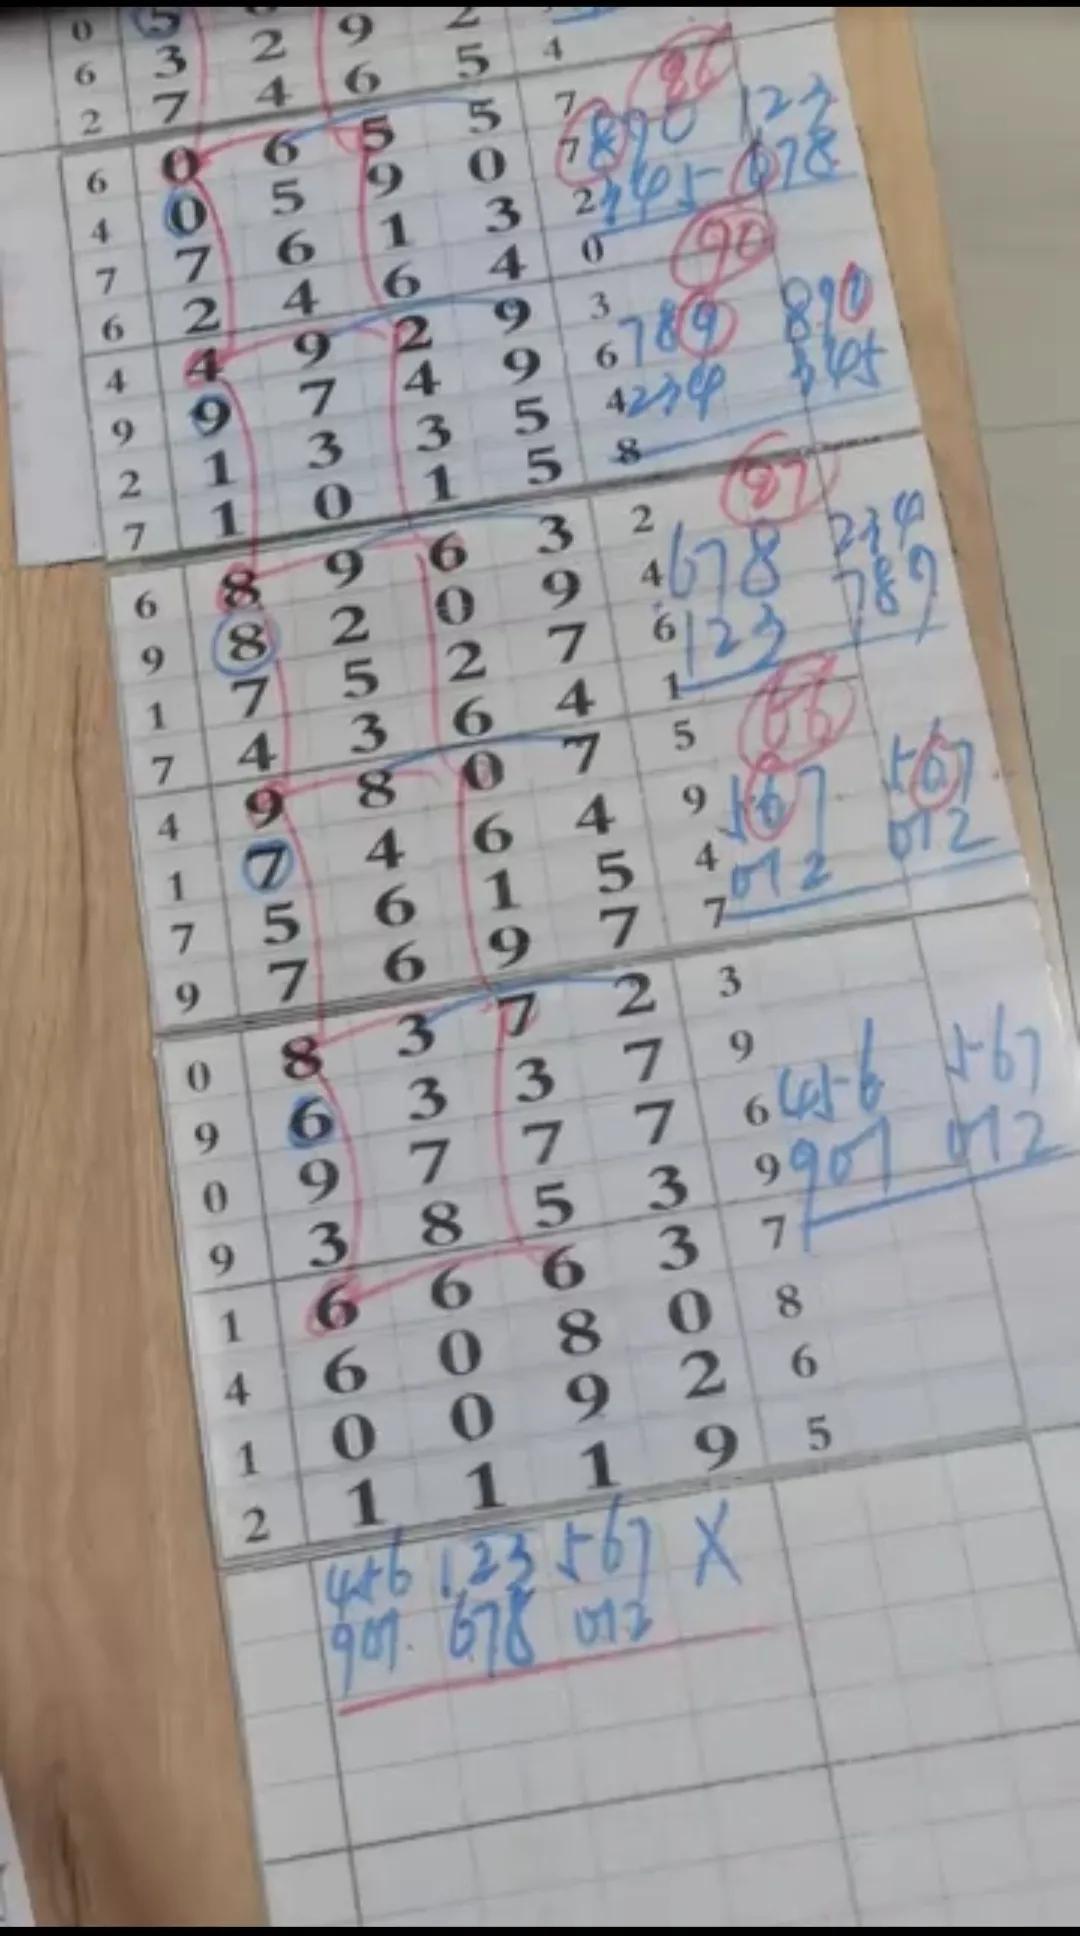 0 5 0 9 2
6 3 2 9 5 4
2 7 4 6 5 7
86
6 0 6 5 5 7 890 123
4 0 5 9 0 2 345 678
7 7 6 1 3 0
90
6 2 4 6 4 3
4 4 9 2 9 6 789 890
9 9 7 4 9 4 234 345
2 1 3 3 5 8
7 1 0 1 5 2
87
6 8 9 6 3 4 678 234
9 8 2 0 9 6 123 789
1 7 5 2 7 1
7 4 3 6 4 5
66
4 9 8 0 7 9 567 567
1 7 4 6 4 4 012 012
7 5 6 1 5 7
9 7 6 9 7 3
0 8 3 7 2 9
9 6 3 3 7 6 456 567
0 9 7 7 7 9 901 012
9 3 8 5 3 7
1 6 6 6 3 8
4 6 0 8 0 6
1 0 0 9 2 5
2 1 1 1 9
456 123 567 X
901. 678 012